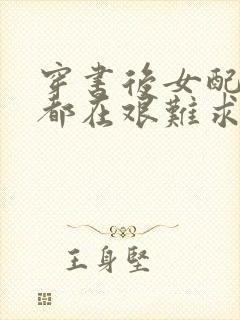 穿書後女配
都在艱難求
王身堅